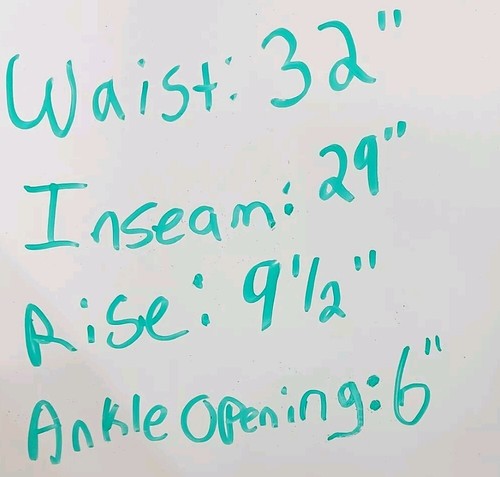 Waist: 32"
Inseam: 29"
Rise: 9 1/2"
Ankle Opening: 6"